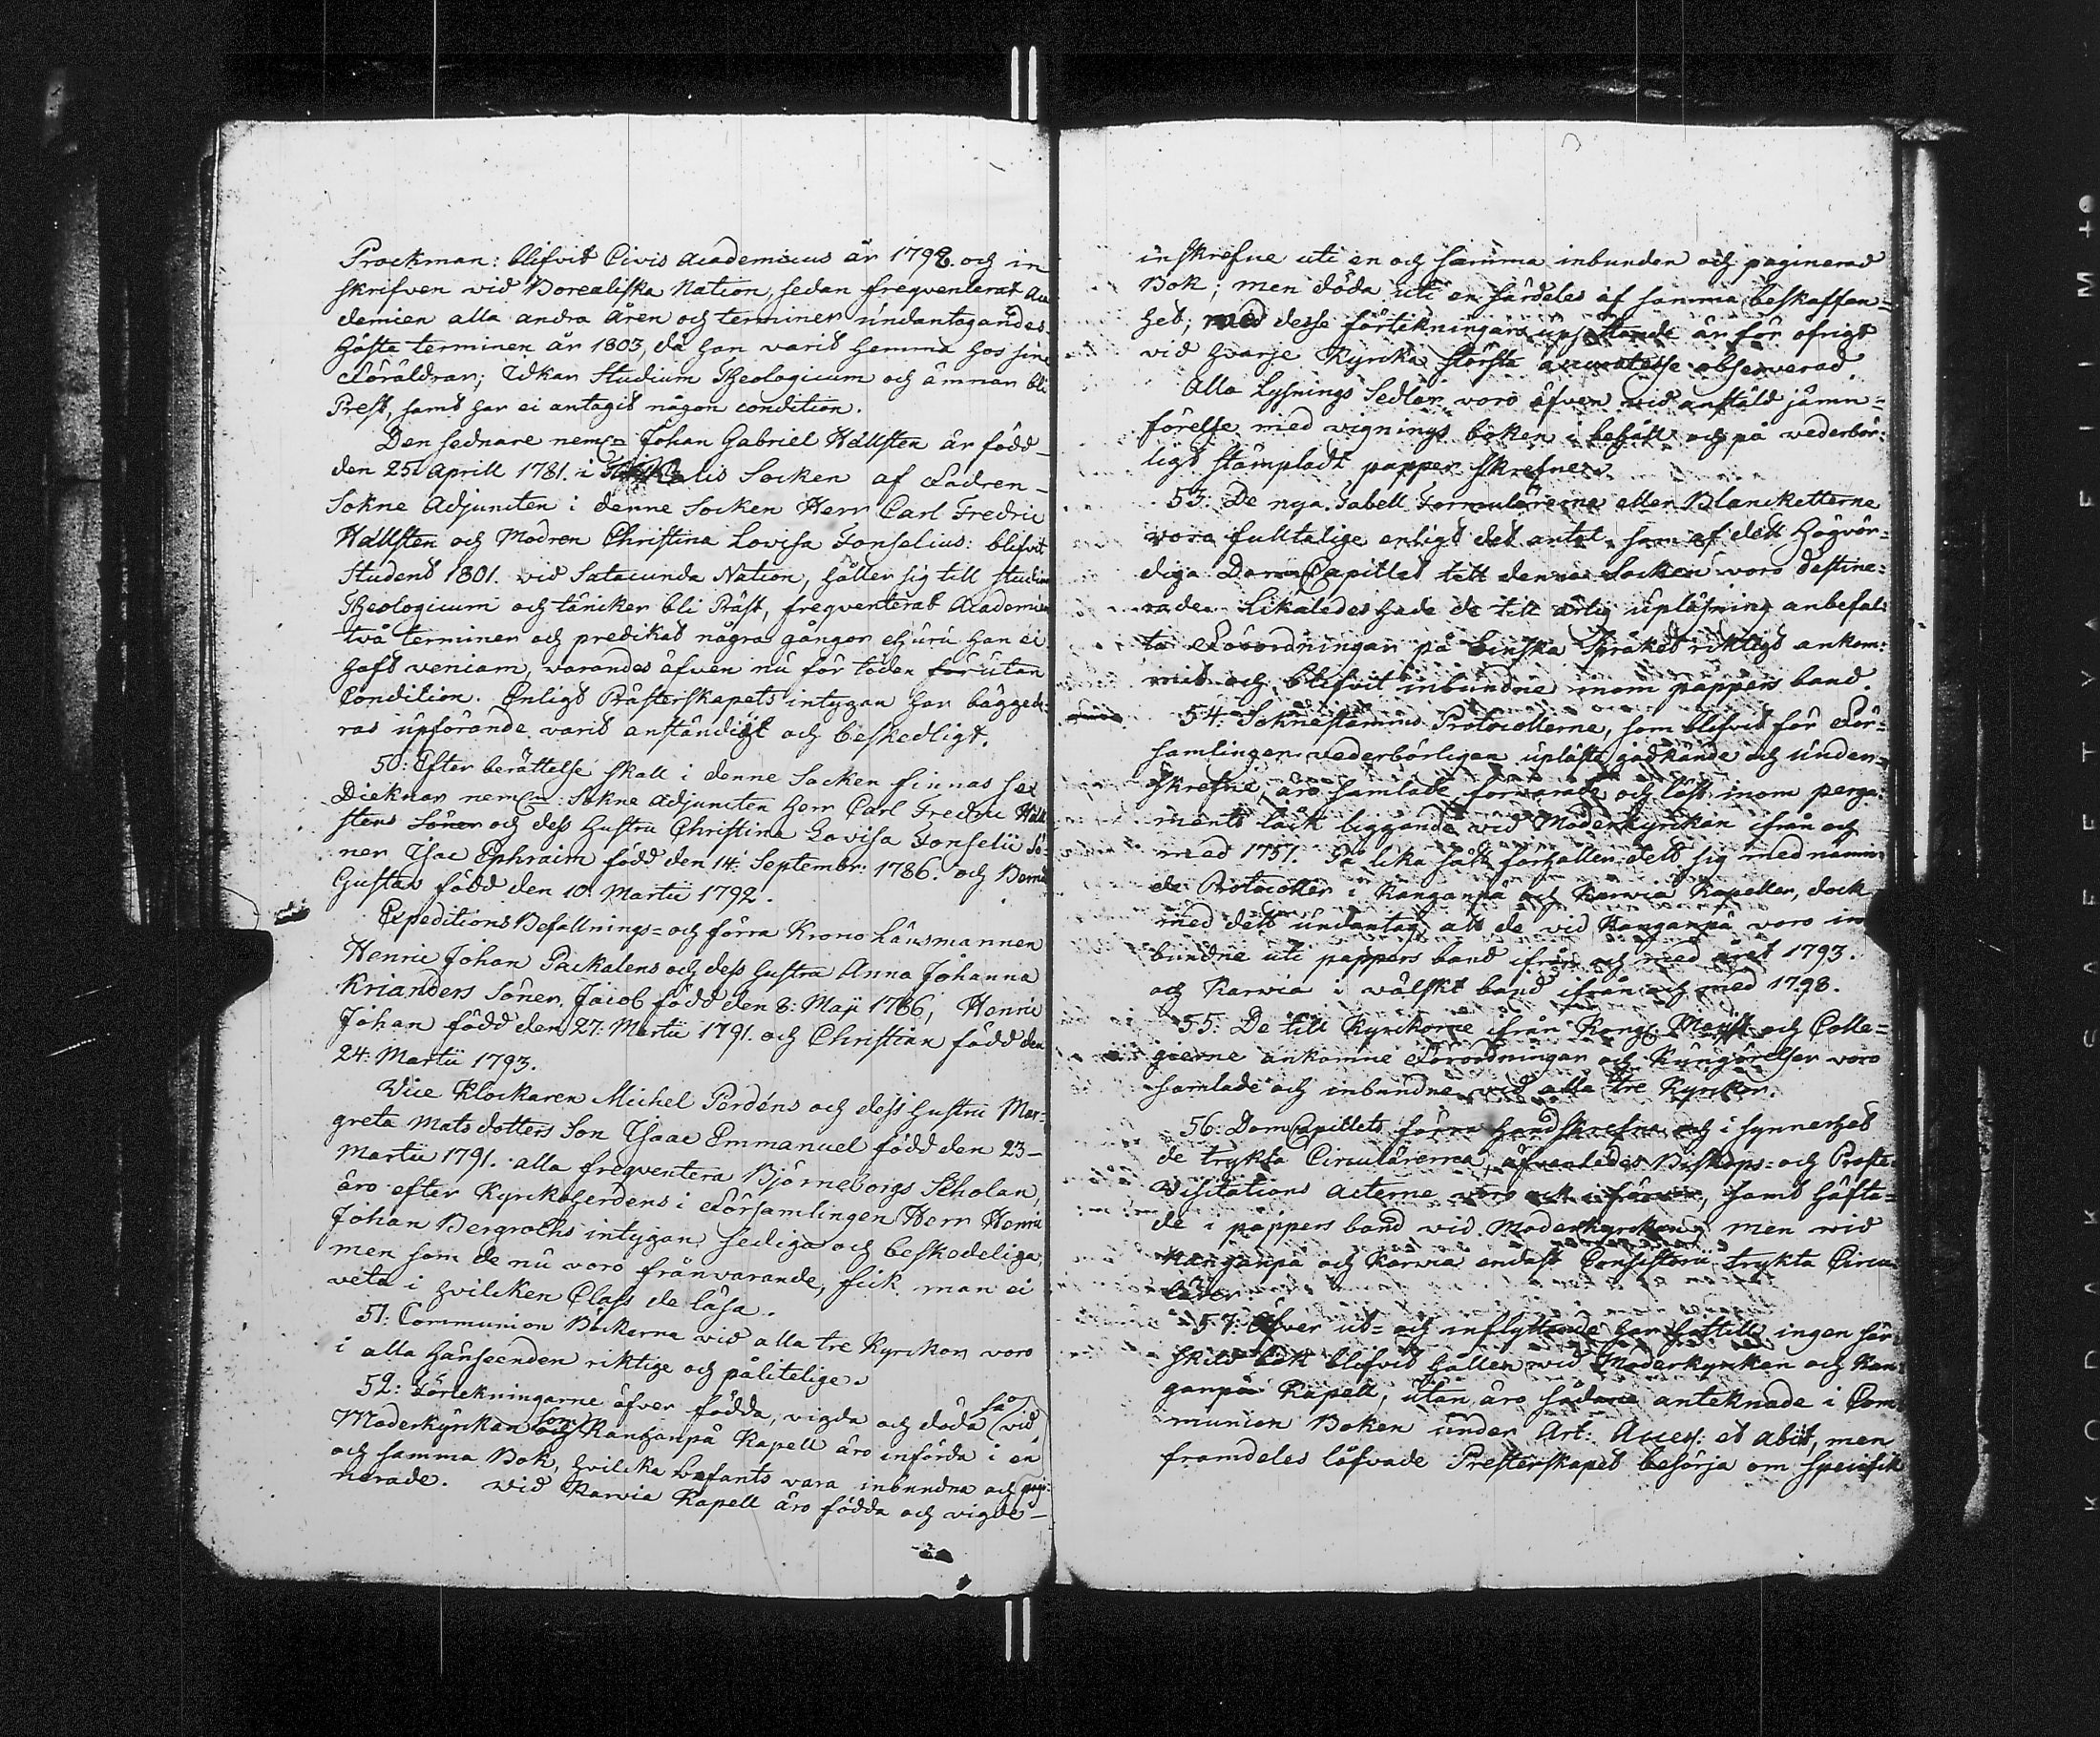 Prockman: blifvit Civis academicus år 1798. och in
skrifven vid Borealiska Nation, sedan freqventerat Aca
demien alla andra åren och terminer undantagandes
hösta terminen år 1803, då han varit hemma hos sine
Föräldrar; Idkar Studium Theologicum och ämnar bli
Prest, samt har ei antagit någon condition.
Den sednare neml. Johan Gabriel Hällsten är född
den 25. Aprill 1781. i Socken af Fadren
Sokne Adjuncten i denne Socken Herr Carl Fredric
Hällsten och Modren Christina Lovisa Fonselius: blifvit
Student 1801. vid Satacunda Nation, håller sig till studium
Theologicum och täncker bli Präst, freqventerat Academien
två terminer och predikat några gånger ehuru han ei
haft veniam, varandes äfven nu för tiden förutan
Condition. Enligt Prästerskapets intygan har bägges de
ras upförande varit anständigt och beskedligt.
50: Efter berättelse skall i denne Socken finnas sex
Dieknar neml. Sokne Adjuncten Herr Carl Fredric Häll
stens Söner och dess hustru Christina Lovisa Fonselii Sö
ner Isac Ephraim född den 14. Septembr. 1786. och Bernd
Gustav född den 10. Martii 1792.
Expeditions Befallnings= och förra Krono Länsmannen
Henric Johan Packalens och dess hustru Anna Johanna
Krianders Söner, Jacob född den 8: Maji 1786, Henric
Johan född den 27. Martii 1791. och Christian född den
24: Martii 1793.
Vice Klockaren Michel Perdéns och dess hustru Mar=
greta Mats dotters Son Isaac Emmanuel född den 23
Martii 1791. alla freqventera Björneborgs Scholan,
äro efter Kyrkoherdens i Församlingen Herr Henric
Johan Bergroths intygan sediga och beskedeliga,
men som de nu voro frånvarande, fick man ei
veta i hvilcken Class de läsa.
51: Communion Böckerna vid alla tre Kyrckor voro
i alla hänseenden riktige och pålitelige.
52: Förtekningarne äfver födda, vigda och döda så vid
Moderkyrkan som Kanganpä Kapell äro införda i en
och samma Bok, hvilcka befants vara inbundna och pagi=
nerade. Wid Karvia Kapell äro födda och vigde
inskrefne uti en och samma inbunden och paginerad
Bok; men döda uti en särdeles af samma beskaffen=
het; med desse förtekningars upsättande är för öfrigt
vid hvarje Kyrcka största accuratesse observerad.
Alla Lysnings Sedlar voro äfven vid anstäld jämn=
förelse med vignings boken i behåll och på vederbör=
ligt stämpladt papper skrefne.
53: De nya Tabell Formulärerna eller Blancketterne
voro fulltalige enligt det antal, som af dett Högvör=
diga Dom Capitlet till denna Socken voro destine=
rade. Likaledes hade de till årlig upläsning anbefal=
ta Förordningar på Finska Språket riktigt ankom=
mit och blifvit inbundne inom pappers band.
54: Soknestämmo Protocollerne, som blifvit för För=
samlingen vederbörligen upläste, godkände och under=
skrefne, äro samlade förvarade och löst inom perga
ments läck liggande vid Moderkyrckan ifrån och
med 1751. På lika sätt förhåller dett sig med nämn=
de Protocoller i Kanganpä och Karvia Kapeller, dock
med dett undantag, att de vid Kanganpä voro in
bundne uti pappers band ifrån och med året 1793.
och Karvia i välskt band ifrån och med 1798.
55: De till Kyrckorne ifrån Kongl. Maijst. och Colle=
gierne ankomne Förordningar och Kungörelser voro
samlade och inbundne vid alla tre Kyrckor.
56: Dom Capitlets förra handskrefna och i synnerhet
de trykta Circulärerna, äfvenledes Biskops= och Proste
Visitations Acterne voro ock i förvar, samt häfta=
de i pappers band vid Moderkyrckan; men vid
Kanganpä och Karvia endast Consistorii trykta Circu
lärer.
57: Öfver ut= och inflyttande har hittills ingen sär
skild bok blifvit hållen vid Moderkyrckan och Kan
ganpä Kapell, utan äro sådane anteknade i Com
munion Boken under Art: Access: et abit, men
framdeles låfvade Presterskapet besörja om specifik